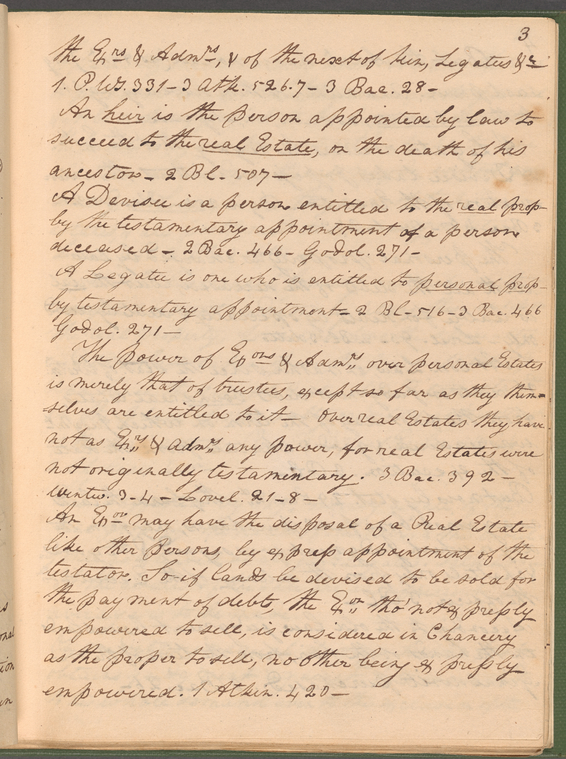 3
the Exrs & Admrs, & of the next of kin, Legatees &c
1. P. Ws. 331 - 3 Atk. 526.7 - 3 Bac. 28 -
An heir is the person appointed by law to
succeed to the real Estate, on the death of his
ancestor - 2 Bl - 507 -
A Devisee is a person entitled to the real prop-
by the testamentary appointment of a person
deceased - 2 Bac. 466 - Godol. 271 -
A Legatee is one who is entitled to personal prop-
by testamentary appointment - 2 Bl - 516 - 3 Bac. 466
Godol. 271 -
The power of Exors & Admrs, over personal Estates
is merely that of trustees, except so far as they them=
selves are entitled to it - Over real Estates they have
not as Exrs & admrs any power, for real Estates were
not originally testamentary. 3 Bac. 392 -
Wentw. 3-4 - Lovel. 21-8 -
An Exor may have the disposal of a Real Estate
like other Persons, by express appointment of the
testator. So if lands be devised to be sold for
the payment of debts, the Exor, tho' not expressly
empowered to sell, is considered in Chancery
as the proper to sell, no other being expressly
empowered. 1 Atkin. 420 -